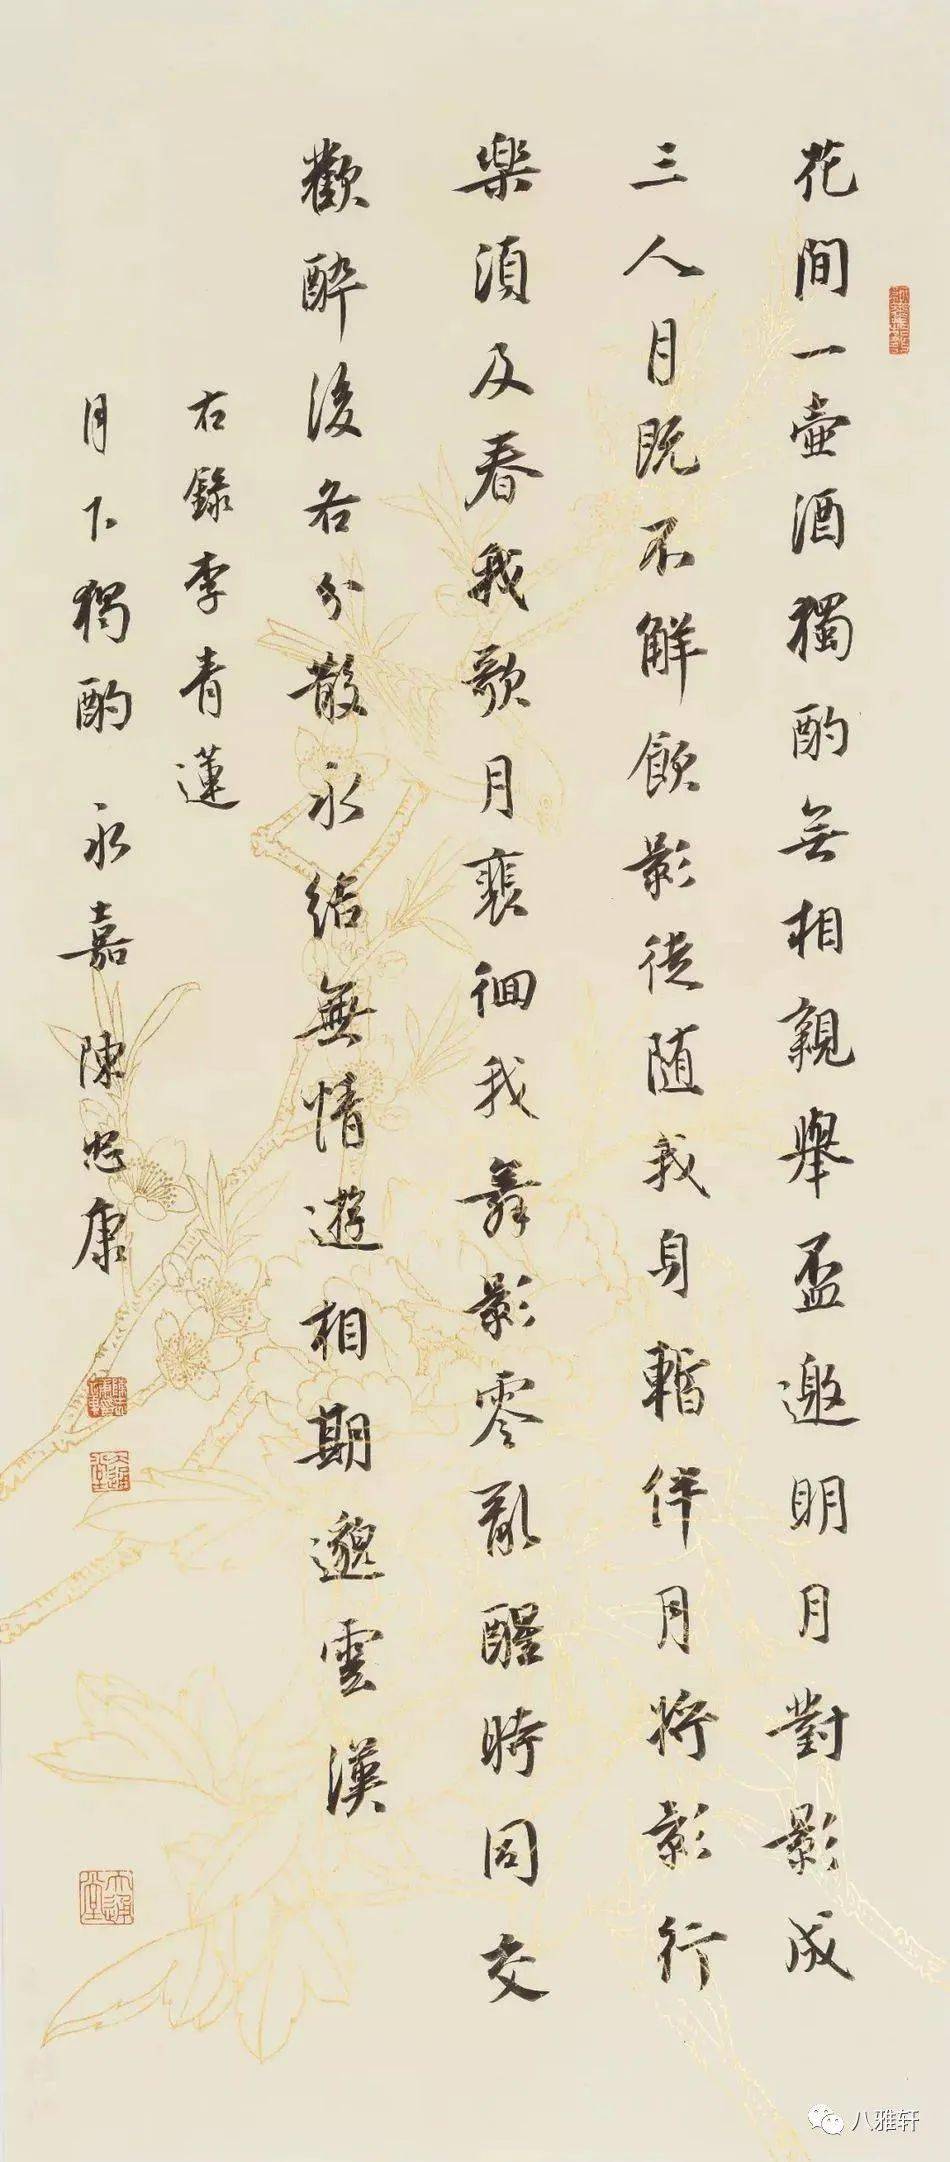 花間一壺酒獨酌無相親舉盃邀明月對影成
三人月既不解飲影徒随我身暫伴月將影行
樂須及春我歌月裵徊我舞影零亂醒時同交
歡醉後各分散永结無情遊相期邈雲漢
右錄李青蓮
月下獨酌 永嘉 陳忠康
八雅轩